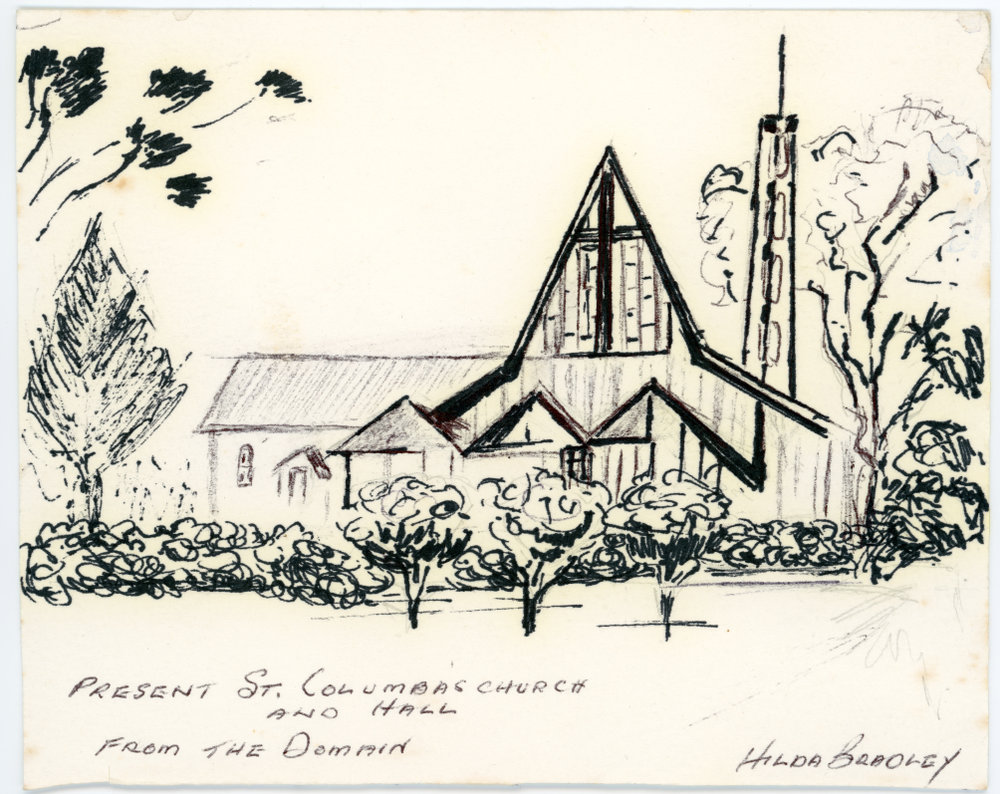 PRESENT ST. COLUMBA'S CHURCH
AND HALL
FROM THE DOMAIN
HILDA BRADLEY